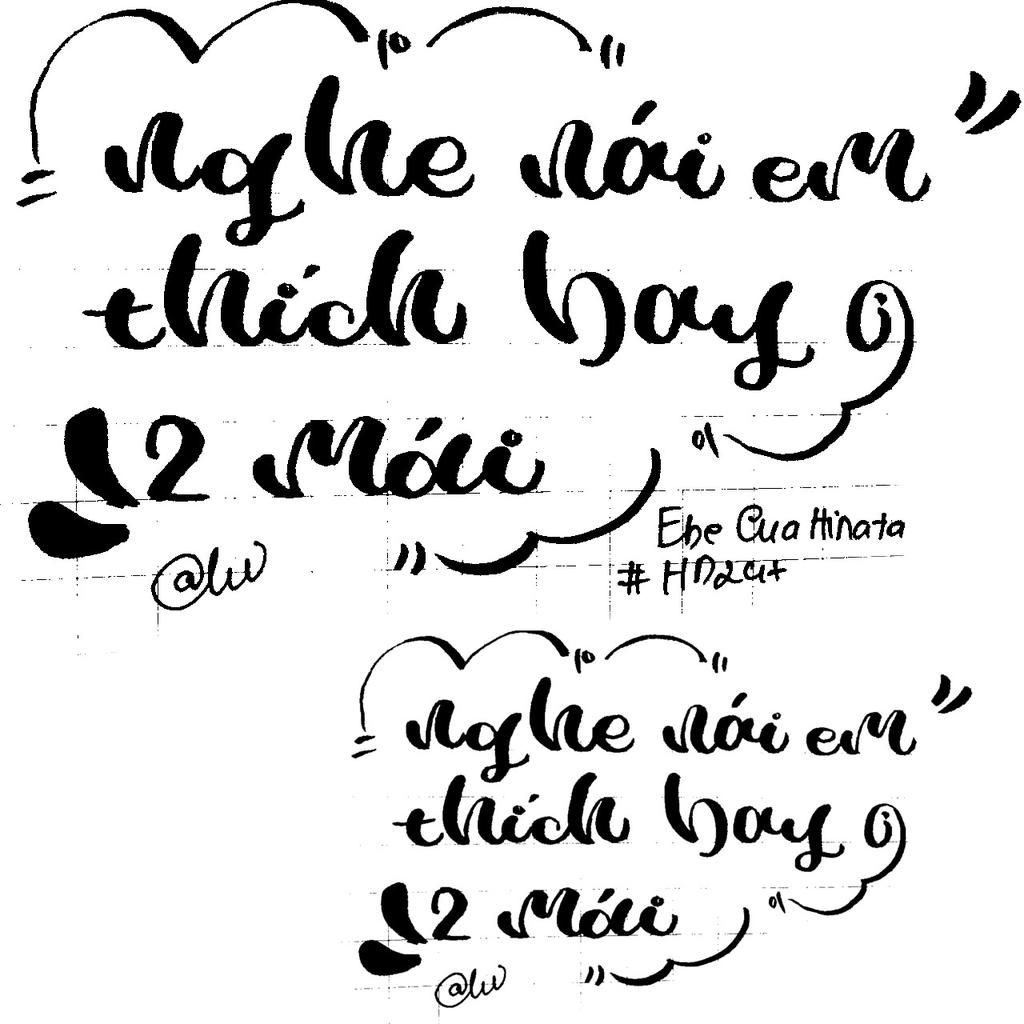 Nghe nói em
thích bay
2 mái
@lw
Ebe Cua Hinata
Nghe nói em
thích bay
2 mái
@lw